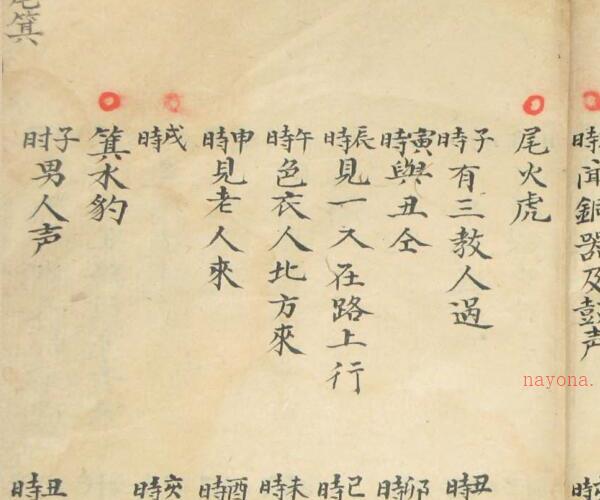 時聞銅器及鼓声
尾火虎
子時有三教人過
寅時與丑仝
辰時見一人在路上行
午時色衣人北方來
申時見老人來
戌時
箕水豹
子时男人声
箕
丑時
卯時
巳時
未時
酉時
亥時
丑時
nayona.